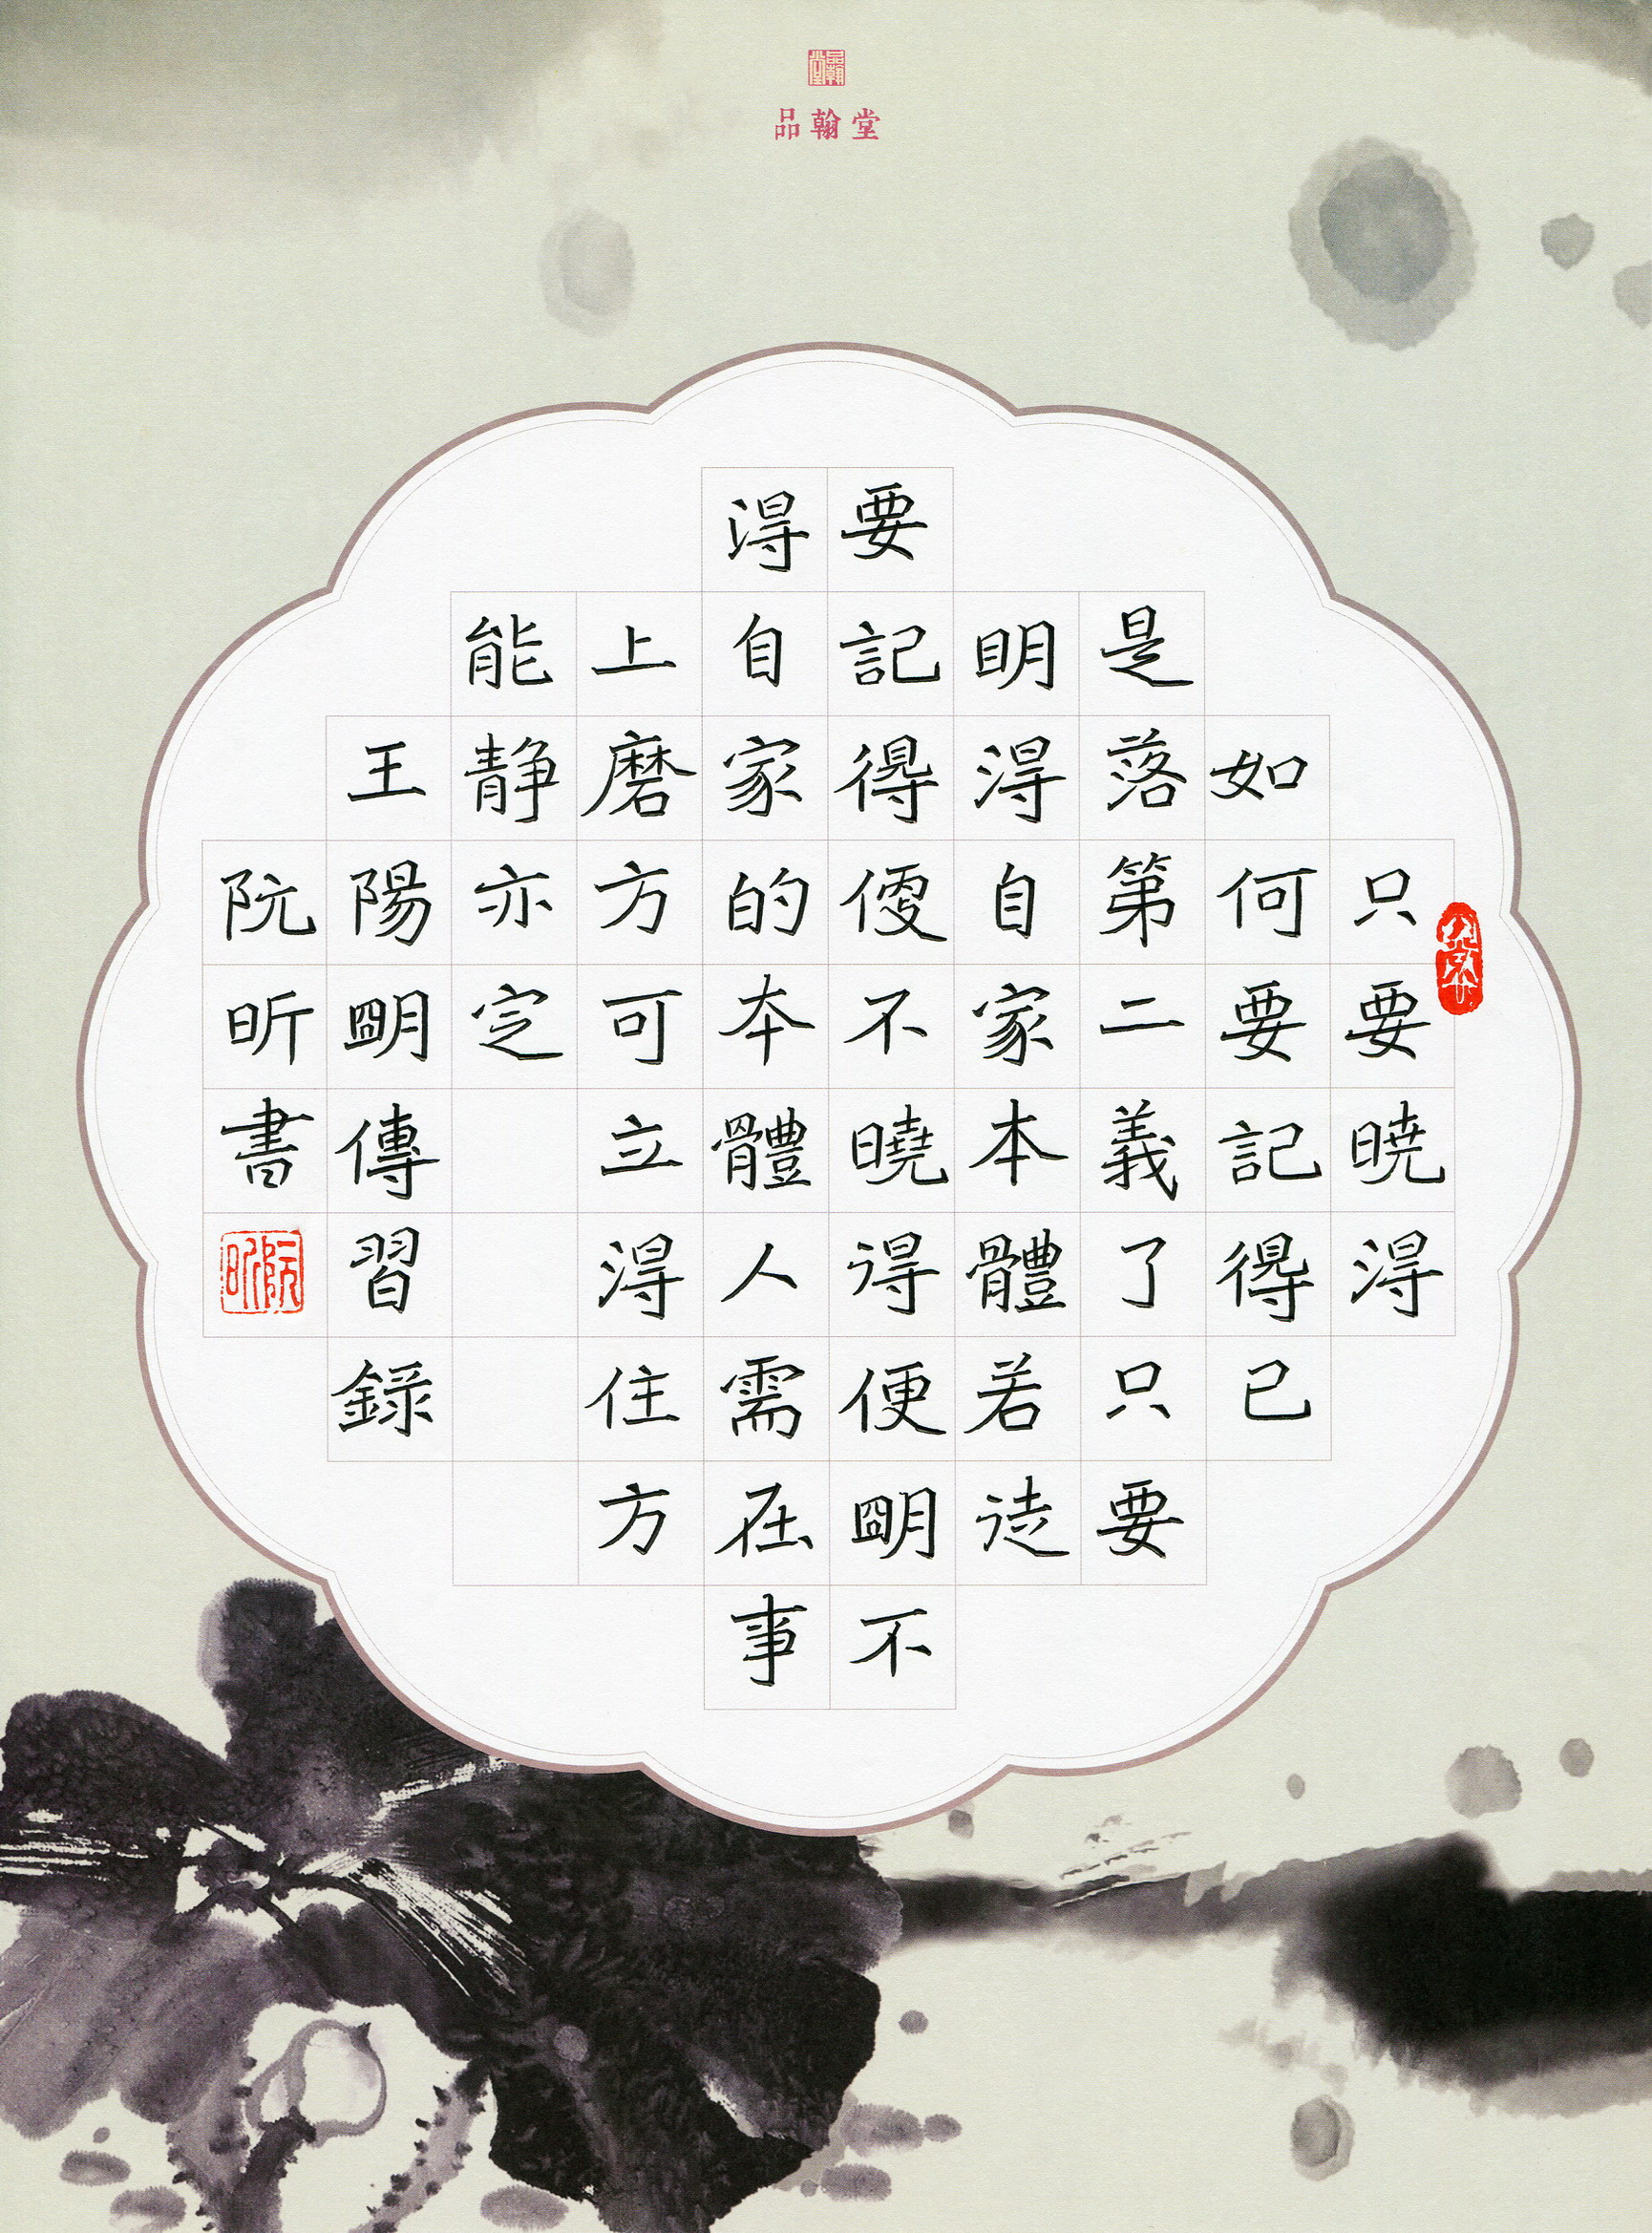 品翰堂
品翰堂
只要曉得
如何要記得已
是落第二義了只要
明得自家本體若徒
要記得便不曉得便明不
得自家的本體人需在事
上磨方可立得住方
能静亦定
王陽明傳習錄
阮昕書
阮昕